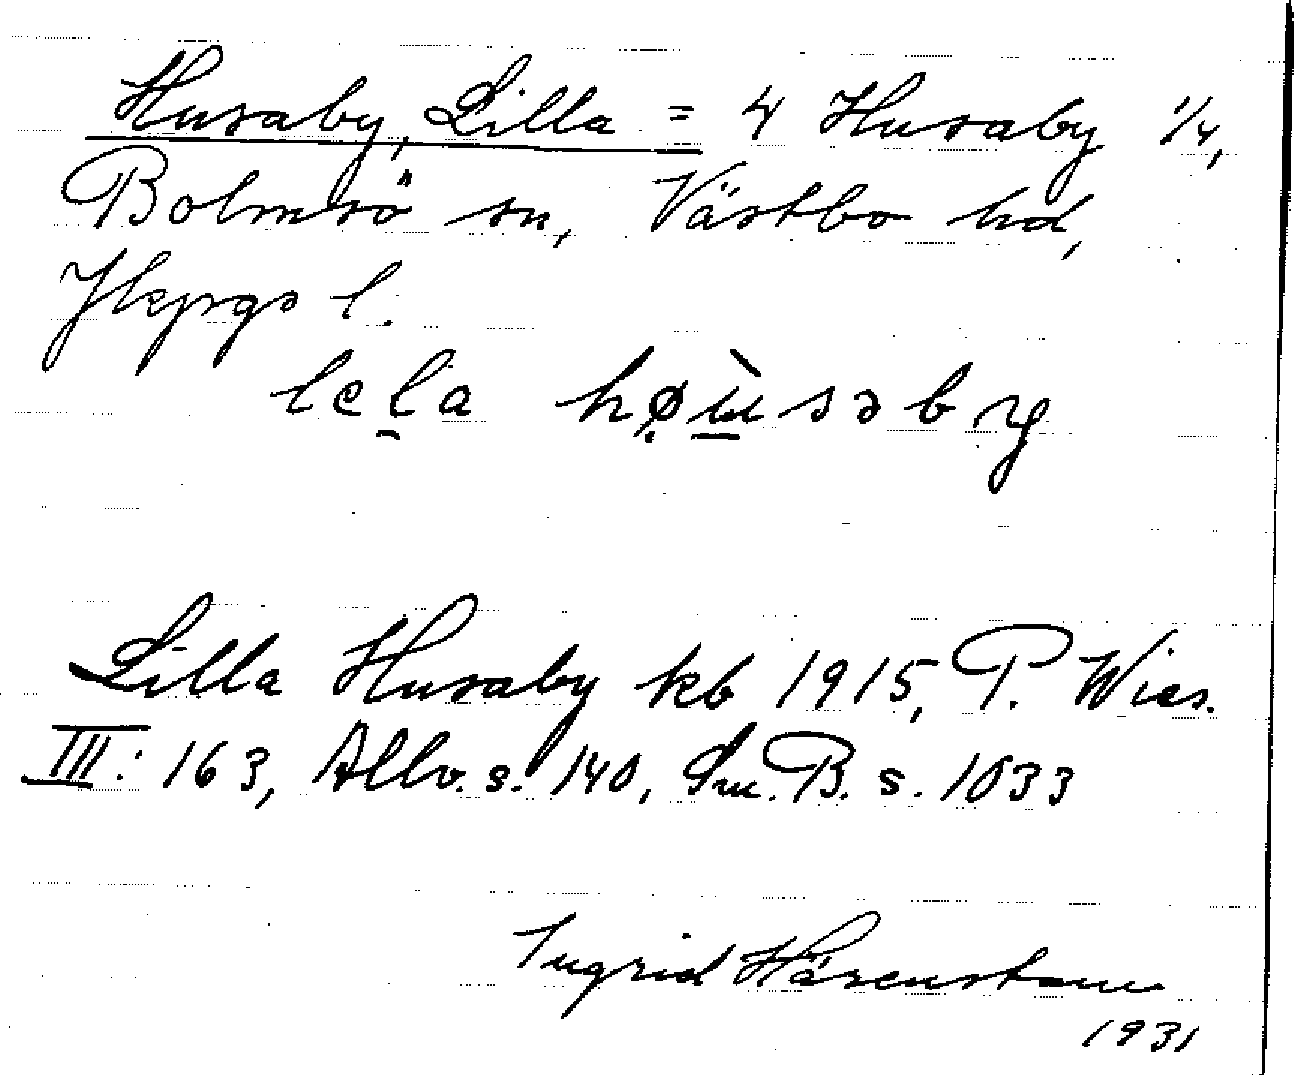 Husaby, Lilla = 4 Husaby 1/4,
Bolmsö sn, Västbo hd,
Jkpgs l.
lela høusəby
Lilla Husaby kb 1915, P. Wies.
III: 163, Allv. s. 140, Sm. B. s. 1033
Ingrid Härenstam
1931